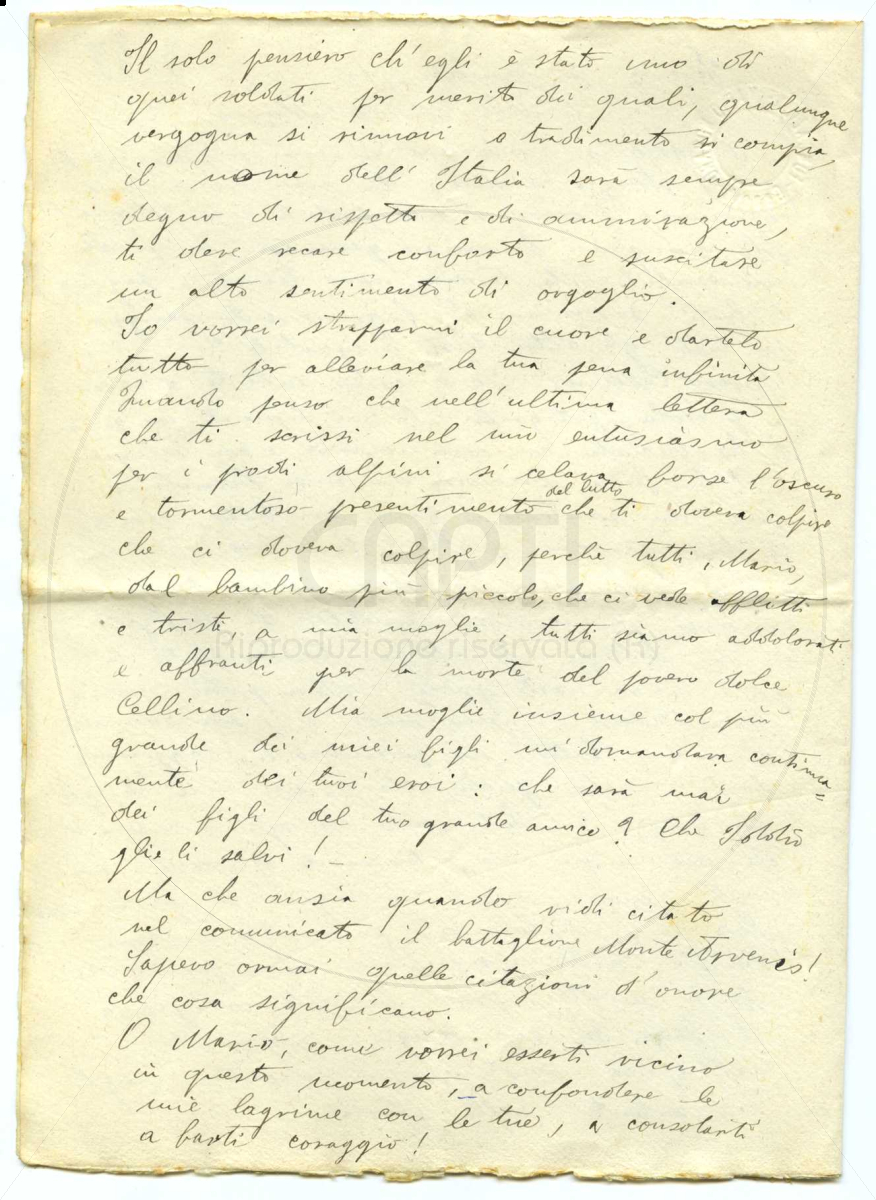 Il solo pensiero ch'egli è stato uno di
quei soldati per merito dei quali, qualunque
vergogna si rinnovi o tradimento si compia,
il nome dell'Italia sarà sempre
degno di rispetto e di ammirazione,
ti deve recare conforto e suscitare
un alto sentimento di orgoglio.
Io vorrei strapparmi il cuore e dartelo
tutto per alleviare la tua pena infinita
Quando penso che nell'ultima lettera
che ti scrissi nel mio entusiasmo
per i prodi alpini si celava forse l'oscuro
e tormentoso presentimento del lutto che ti doveva colpire
che ci doveva colpire, perchè tutti, Mario,
dal bambino più piccolo, che ci vede afflitti
e tristi, a mia moglie, tutti siamo addolorati
e affranti per la morte del povero dolce
Cellino. Mia moglie insieme col più
grande dei miei figli mi domandava continua=
mente dei tuoi eroi: che sarà mai
dei figli del tuo grande amico? Che Iddio
glie li salvi! –
Ma che ansia quando vidi citato
nel comunicato il battaglione Monte Arvenis!
Sapevo ormai quelle citazioni d'onore
che cosa significano.
O Mario, come vorrei esserti vicino
in questo momento, a confondere le
mie lagrime con le tue, a consolarti
a farti coraggio!
CAPTI
Riproduzione riservata (R)